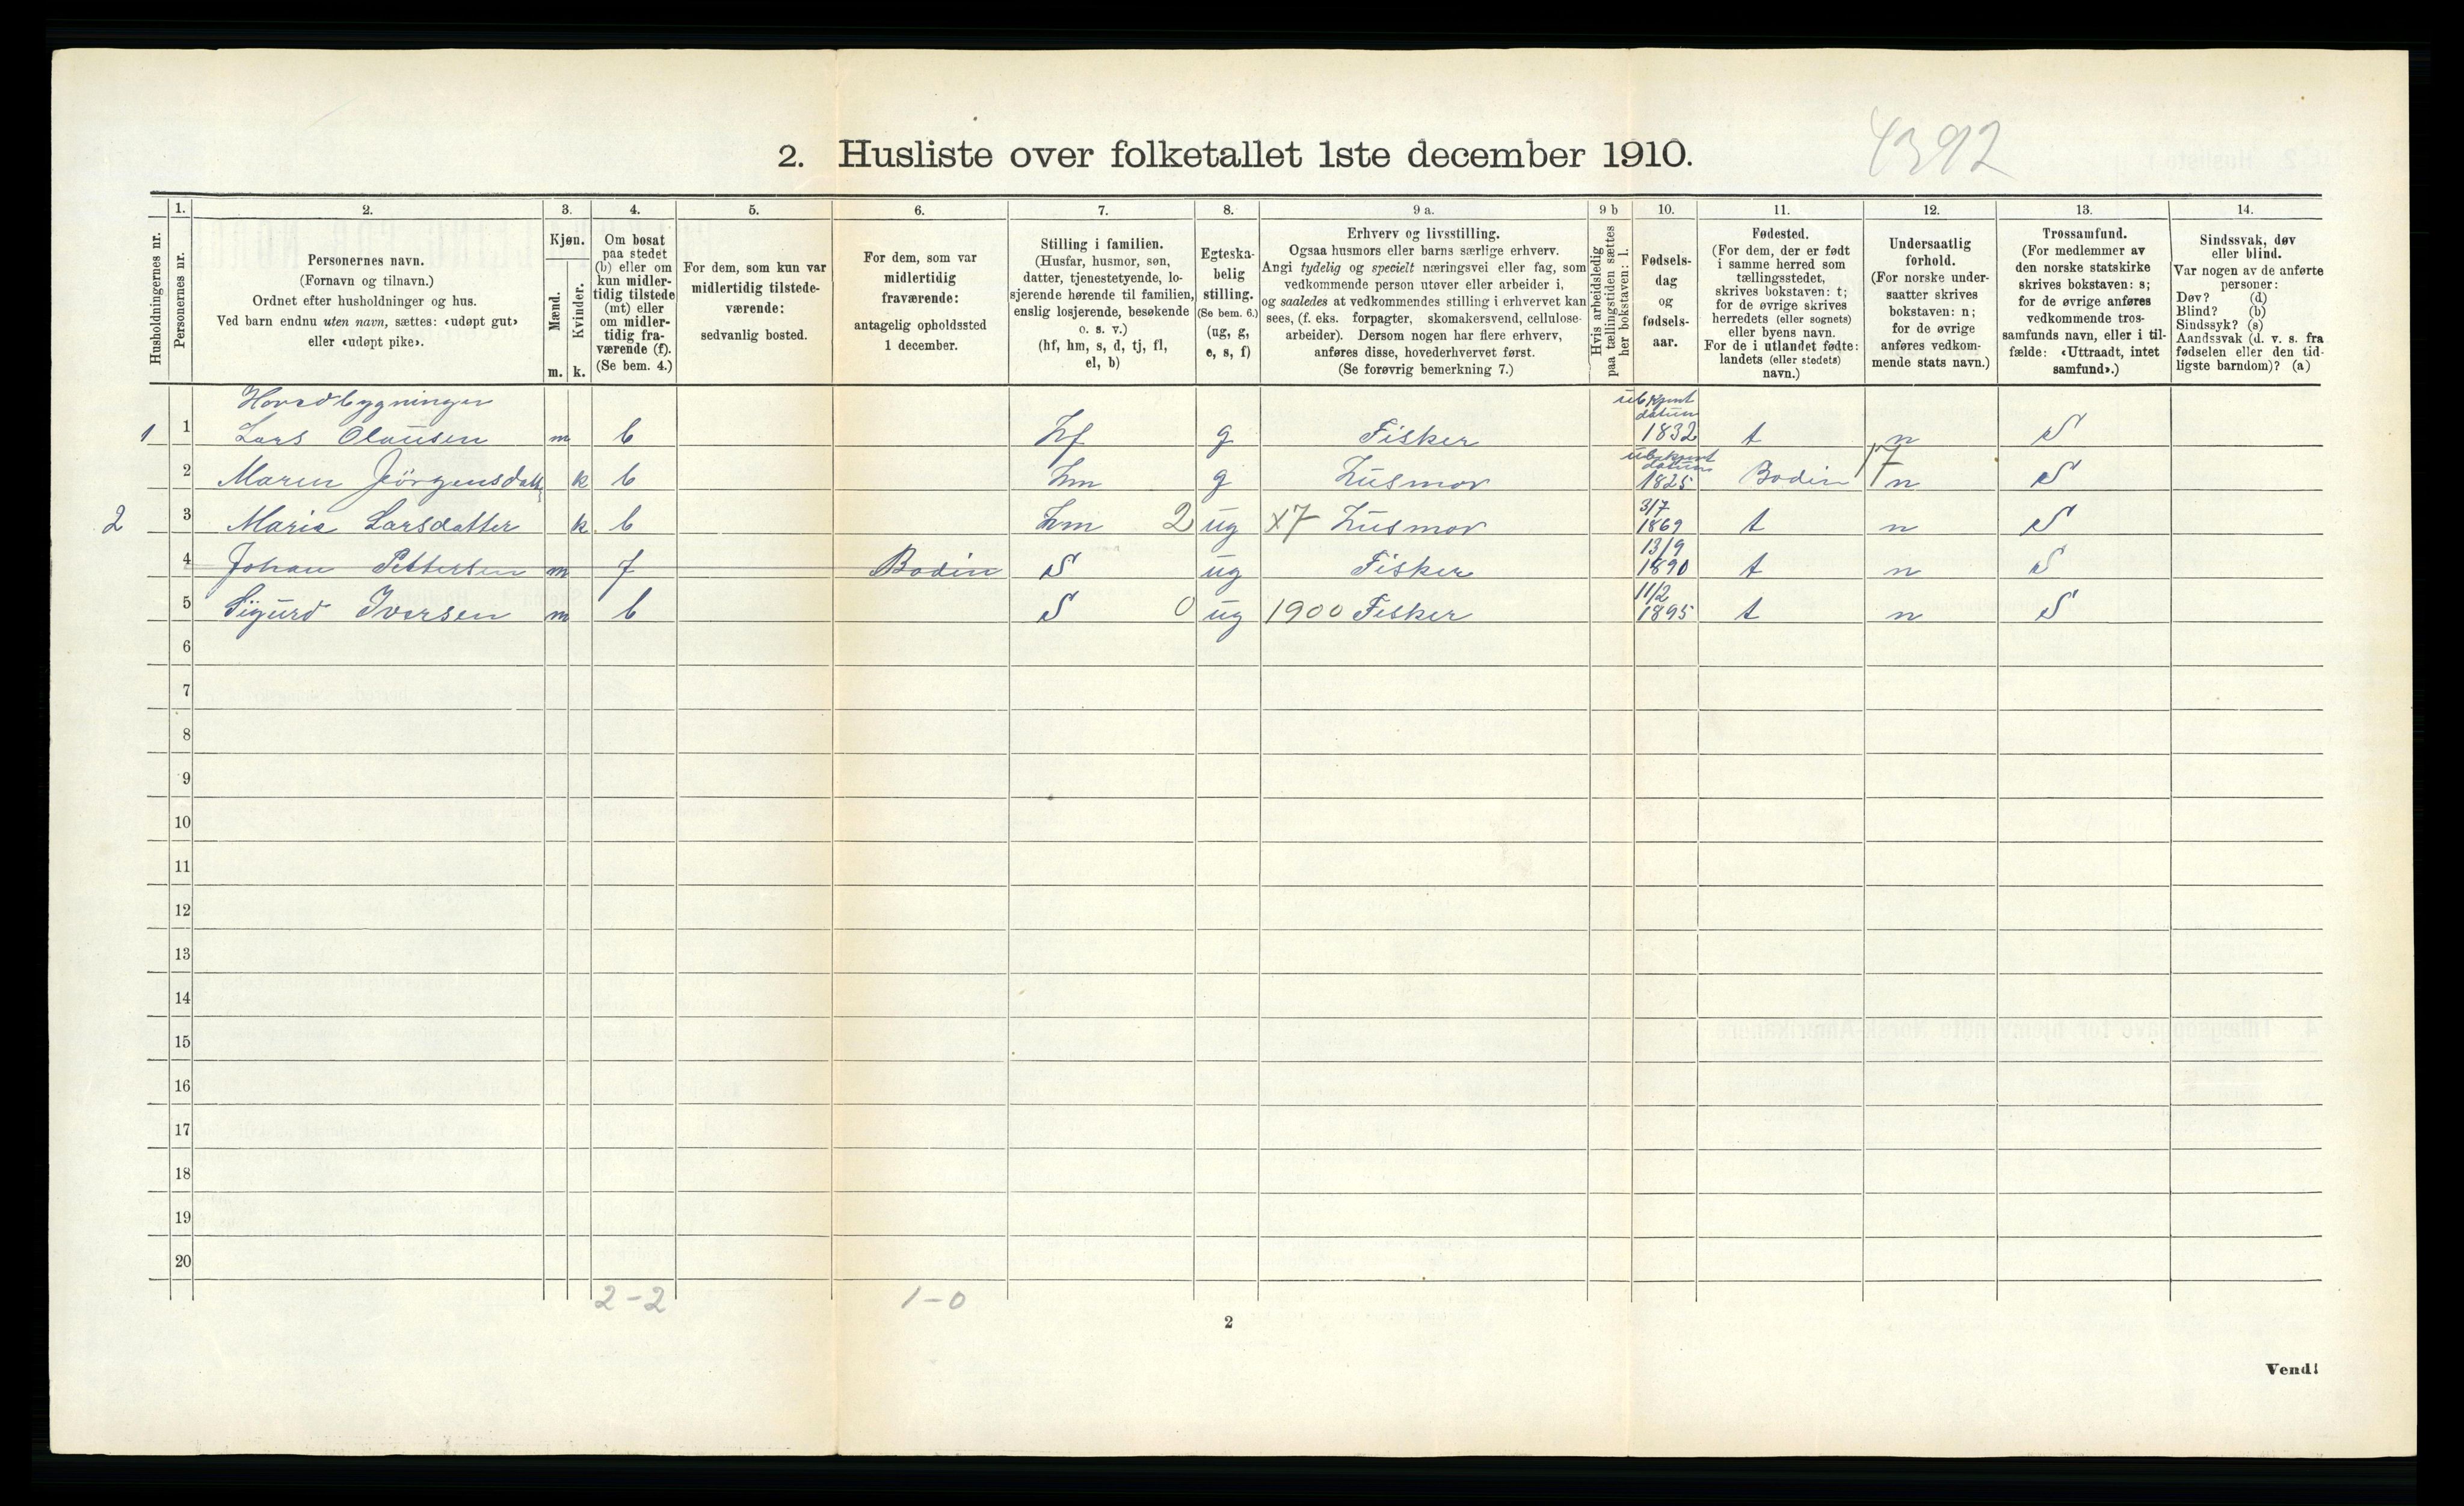 2. Husliste over folketallet 1ste december 1910.
4392
Husholdningernes nr.
1.
Personernes nr.
2.
Personernes navn.
(Fornavn og tilnavn.)
Ordnet efter husholdninger og hus.
Ved barn endnu uten navn, sættes: «udøpt gut»
eller «udøpt pike».
3.
Kjøn.
Mænd.
Kvinder.
m. k.
4.
Om bosat
paa stedet
(b) eller om
kun midler-
tidig tilstede
(mt) eller
om midler-
tidig fra-
værende (f).
(Se bem. 4.)
5.
For dem, som kun var
midlertidig tilstede-
værende:
sedvanlig bosted.
6.
For dem, som var
midlertidig
fraværende:
antagelig opholdssted
1 december.
7.
Stilling i familien.
(Husfar, husmor, søn,
datter, tjenestetyende, lo-
sjerende hørende til familien,
enslig losjerende, besøkende
o. s. v.)
(hf, hm, s, d, tj, fl,
el, b)
8.
Egteska-
belig
stilling.
(Se bem. 6.)
(ug, g,
e, s, f)
9 a.
Erhverv og livsstilling.
Ogsaa husmors eller barns særlige erhverv.
Angi tydelig og specielt næringsvei eller fag, som
vedkommende person utøver eller arbeider i,
og saaledes at vedkommendes stilling i erhvervet kan
sees, (f. eks. forpagter, skomakersvend, cellulose-
arbeider). Dersom nogen har flere erhverv,
anføres disse, hovederhvervet først.
(Se forøvrig bemerkning 7.)
9 b
Hvis arbeidsledig
paa tællingstiden sættes
her bokstaven: l.
10.
Fødsels-
dag
og
fødsels-
aar.
11.
Fødested.
(For dem, der er født
i samme herred som
tællingsstedet,
skrives bokstaven: t;
for de øvrige skrives
herredets (eller sognets)
eller byens navn.
For de i utlandet fødte:
landets (eller stedets)
navn.)
12.
Undersaatlig
forhold.
(For norske under-
saatter skrives
bokstaven: n;
for de øvrige
anføres vedkom-
mende stats navn.)
13.
Trossamfund.
(For medlemmer av
den norske statskirke
skrives bokstaven: s;
for de øvrige anføres
vedkommende tros-
samfunds navn, eller i til-
fælde: «Uttraadt, intet
samfund».)
14.
Sindssvak, døv
eller blind.
Var nogen av de anførte
personer:
Døv? (d)
Blind? (b)
Sindssyk? (s)
Aandssvak (d. v. s. fra
fødselen eller den tid-
ligste barndom)? (a)
Hovedbygningen
1 1 Lars Olausen m b hf g Fisker ubkjent datum 1832 t n S
2 Maren Jörgensdatt k b hm g Husmor ubekjent datum 1825 Bodin 17 n S
2 3 Marie Larsdatter k b hm 2 ug x7 Husmor 3/7 1869 t n S
4 Johan Pettersen m f Bodin S ug Fisker 13/9 1890 t n S
5 Sigurd Iversen m b S 0 ug 1900 Fisker 11/2 1895 t n S
6
7
8
9
10
11
12
13
14
15
16
17
18
19
20
2-2 1-0
2
Vend!